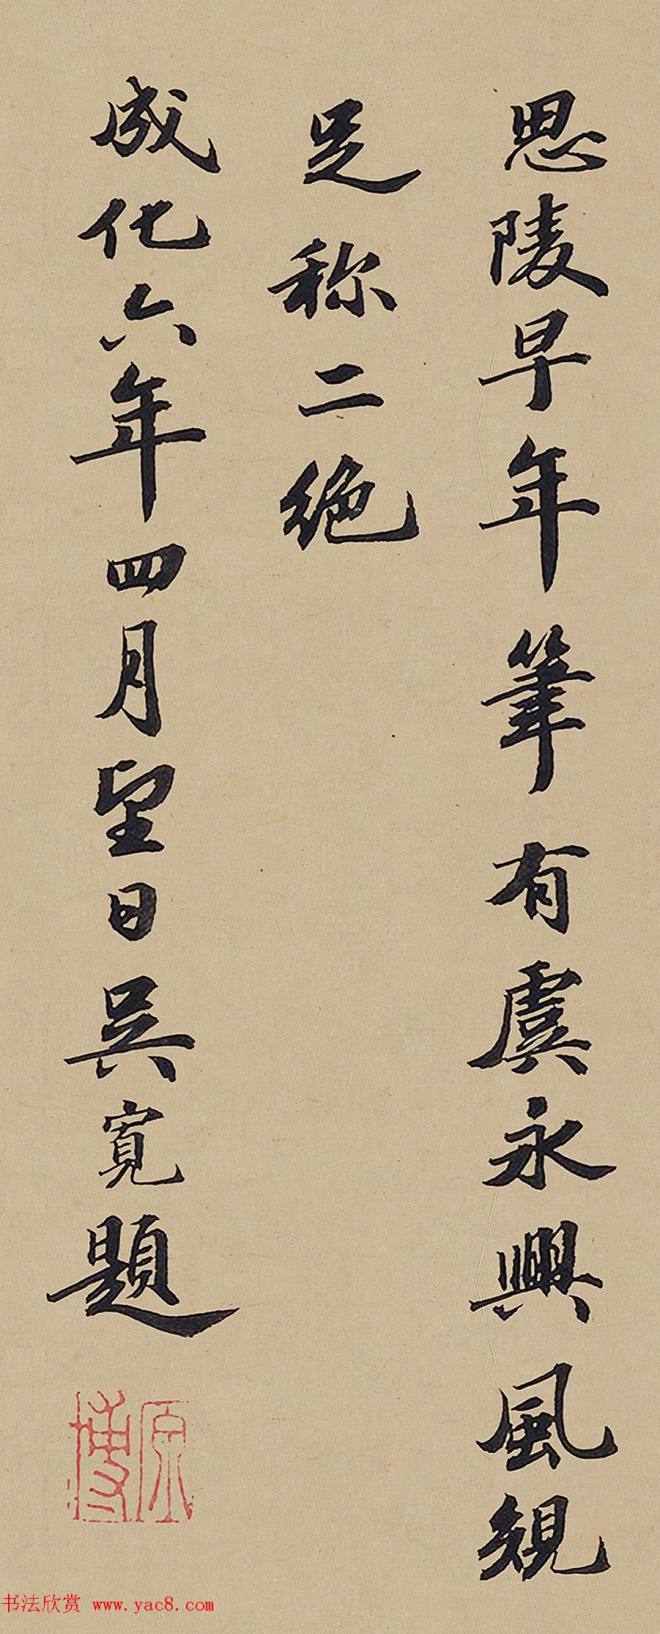 思陵早年筆有虞永興風規
足称二絶
成化六年四月望日吳寛題
原博
书法欣赏 www.yac8.com